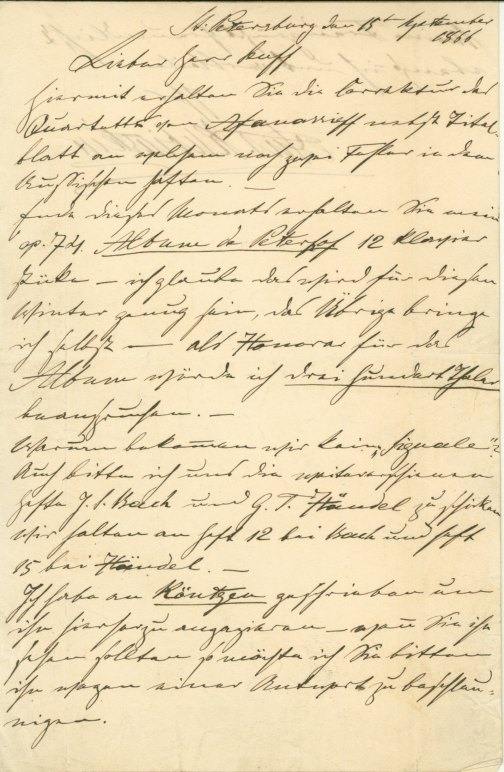 St. Petersburg den 15t September
1866
Lieber Herr Senff
hiermit erhalten Sie die Correktur des
Quartetts von Afanassieff nebst Titel-
blatt an welchem noch zwei Fehler in dem
Russischen haften. —
Ende dieses Monats erhalten Sie mein
op. 74. Album de Peterhof 12 Klavier
stücke — ich glaube das wird für diesen
Winter genug sein, das Übrige bringe
ich selbst — als Honorar für das
Album würde ich drei hundert Thaler
beanspruchen. —
Warum bekommen wir keine „Signale"?
Auch bitte ich uns die weitererschienenen
Hefte J. S. Bach und G. F. Händel zu schicken
wir halten an Heft 12 bei Bach und Heft
15 bei Händel. —
Ich habe an Röntgen geschrieben um
ihn hierher zu engagieren — wenn Sie ihn
sehen sollten so möchte ich Sie bitten
ihn wegen einer Antwort zu beschleu-
nigen.